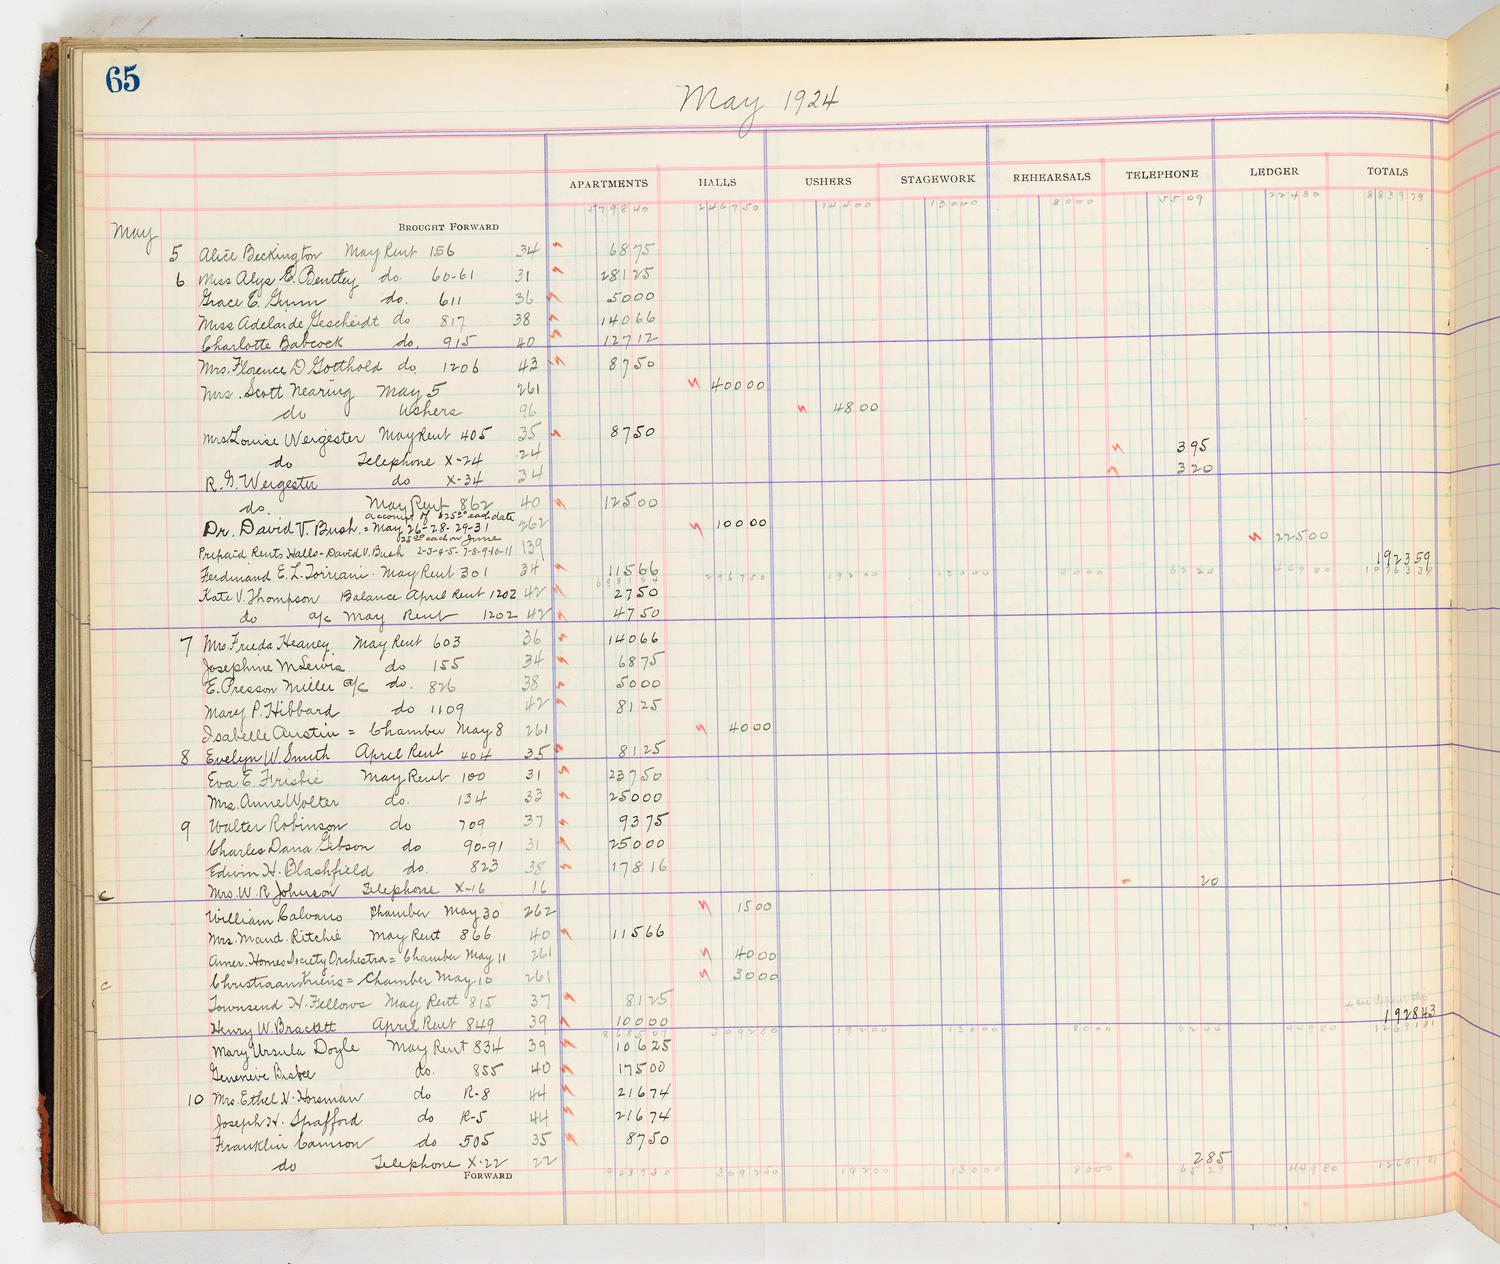 65
May 1924
APARTMENTS HALLS USHERS STAGEWORK REHEARSALS TELEPHONE LEDGER TOTALS
579840 246750 14400 13000 8000 5509 22480 883979
May BROUGHT FORWARD
5 Alice Beckington May Rent 156 34 6875
6 Miss Alys E. Bentley do. 60-61 31 28125
Grace E. Gunn do. 611 36 5000
Miss Adelaide Gescheidt do 817 38 14066
Charlotte Babcock do. 915 40 12712
Mrs. Florence D Gotthold do. 1206 43 8750
Mrs. Scott Nearing May 5 261 40000
do Ushers 96 4800
Mrs Louise Wergester May Rent 405 35 8750
do Telephone X-24 24 395
R. G. Wergester do X-34 34 320
do. May Rent 862 40 12500
account of $25.00 each date
Dr. David V. Bush = May 26-28-29-31 262 10000
25.00 each on June
Prepaid Rents Halls - David V. Bush 2-3-4-5-7-8-9-10-11 139 22500
Ferdinand E. L. Torriani. May Rent 301 34 11566 192359
296750 19200 13000 8000 6224 44980 1076338
Kate V. Thompson Balance April Rent 1202 42 2750
do a/c May Rent 1202 42 4750
7 Mrs. Frieda Heaney May Rent 603 36 14066
Josephine M Lewis do 155 34 6875
E. Presson Miller a/c do. 826 38 5000
Mary P. Hibbard do 1109 42 8125
Isabelle Austin = Chamber May 8 261 4000
8 Evelyn W. Smith April Rent 404 35 8125
Eva E. Frisbie May Rent 100 31 23750
Mrs. Anne Wolter do. 134 33 25000
9 Walter Robinson do 709 37 9375
Charles Dana Gibson do 90-91 31 25000
Edwin H. Blashfield do. 823 38 17816
c Mrs. W. R. Johnson Telephone X-16 16 20
William Calvano Chamber May 30 262 1500
Mrs. Maud Ritchie May Rent 866 40 11566
Amer. Homes Society Orchestra = Chamber May 11 261 4000
c Christiaan Kriens = Chamber May 10 261 3000
Townsend H. Fellows May Rent 815 37 8125
Henry W. Brackett April Rent 849 39 10000 192843
309250 19200 13000 8000 6244 44980 1269181
Mary Ursula Doyle May Rent 834 39 10625
Genevieve Bisbee do. 855 40 17500
10 Mrs. Ethel N. Horsman do R-8 44 21674
Joseph H. Spafford do R-5 44 21674
Franklin Cannon do 505 35 8750
do Telephone X-22 22 285
FORWARD 309250 19200 13000 8000 6529 44980